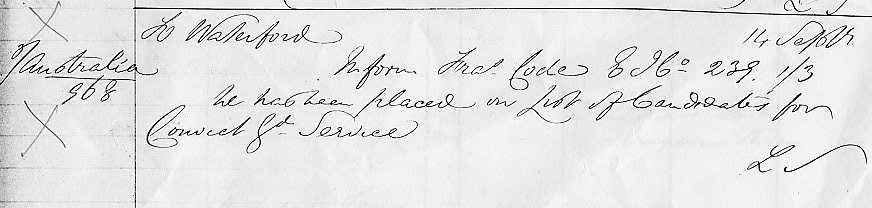 To Waterford 14 Septbr.
Australia
968
Inform Fras. Code E I Co. 239. 1/3
he has been placed on List of Candidates for
Convict Gd. Service
L S